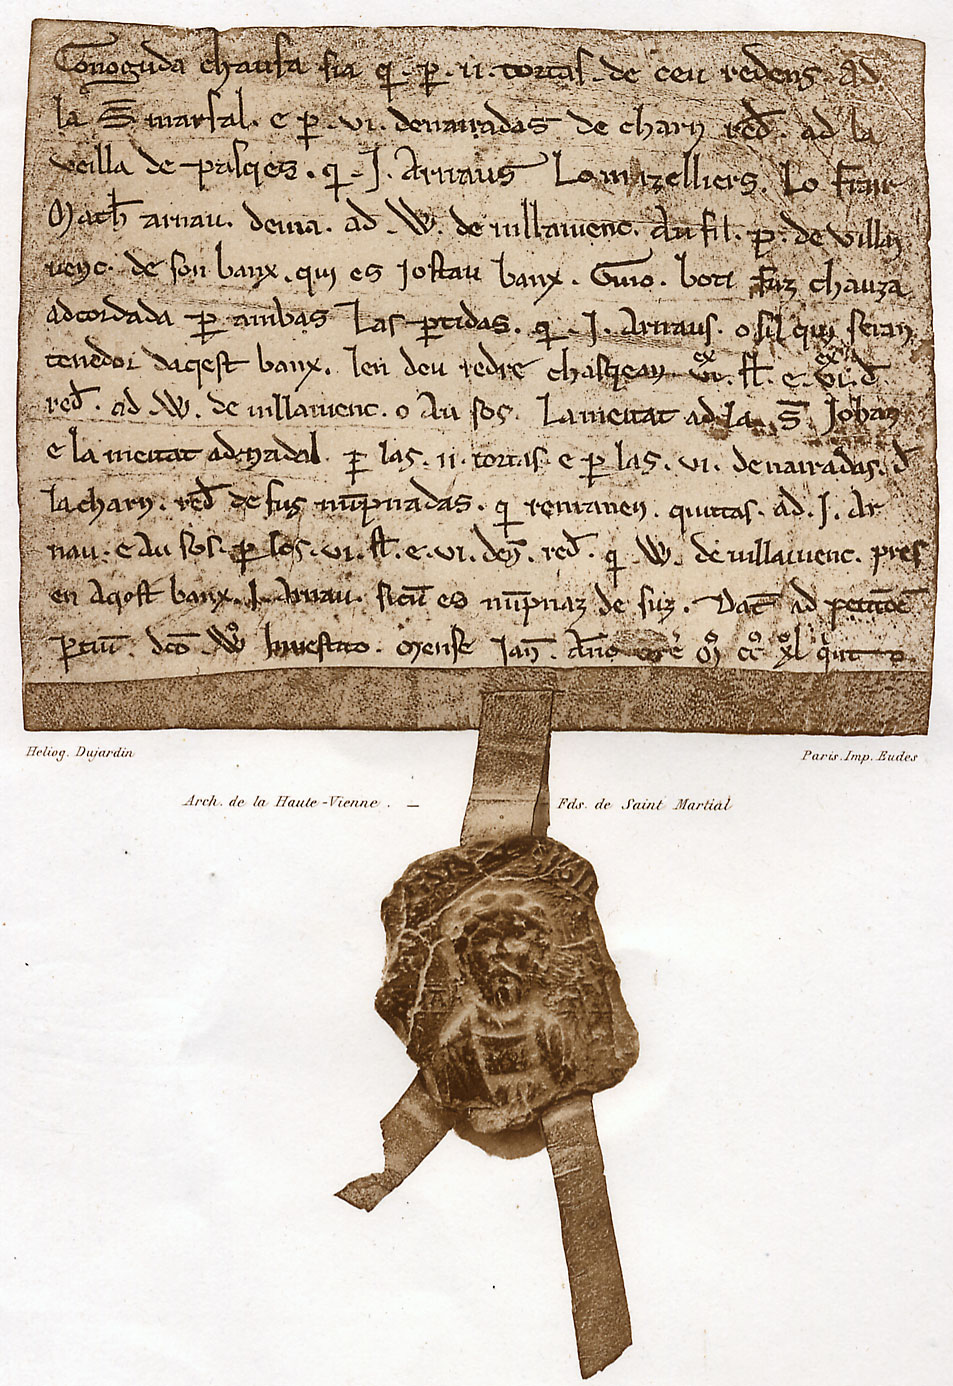 Conoguda chausa sia q̄ . p̄ . ii . tortas . de ceu redens . ad
la S̄ marsal . e p̄ . vi . denairadas de charn red̄ . ad la
veilla de pasqets . q̄ . J . Arnaus Lo mizelliers . Lo frair
Math̄ arnau . devia . ad . W . de villavenc . Au fil . p̄ . de villa
venc . de son banx . qui es jostau banx . Guio . boti . faz chauza
adcordada p̄ ambas las p̄tidas . q̄ . J . Arnaus . o sil qui seran
tenedor daqest banx . len deu redre chasqean vi . ſł . e . vi . đ
red̄ . ad . W . de villavenc . o Au sos . La meitat ad la . S̄ . Johan
e la meitat ad nadal . p̄ las . ii . tortas . e p̄ las . vi . denairadas . đ
la charn . red̄ . de sus nūpnadas . q̄ remanen . quittas . ad . J . Ar
nau . e Au sos . p̄ los . vi . ſł . e . vi . den̄ . red̄ . q̄ . W . de villavenc . pres
en Aqost banx . J . Arnau . sicū es nūpnaz de suz . Dat̄ ad petitōē
p̄tiū . dc̄o . Wo Investito . mense Jan̄ . Ān̄o
Heliog. Dujardin
Paris. Imp. Eudes
Arch. de la Haute-Vienne . — Fds. de Saint Martial